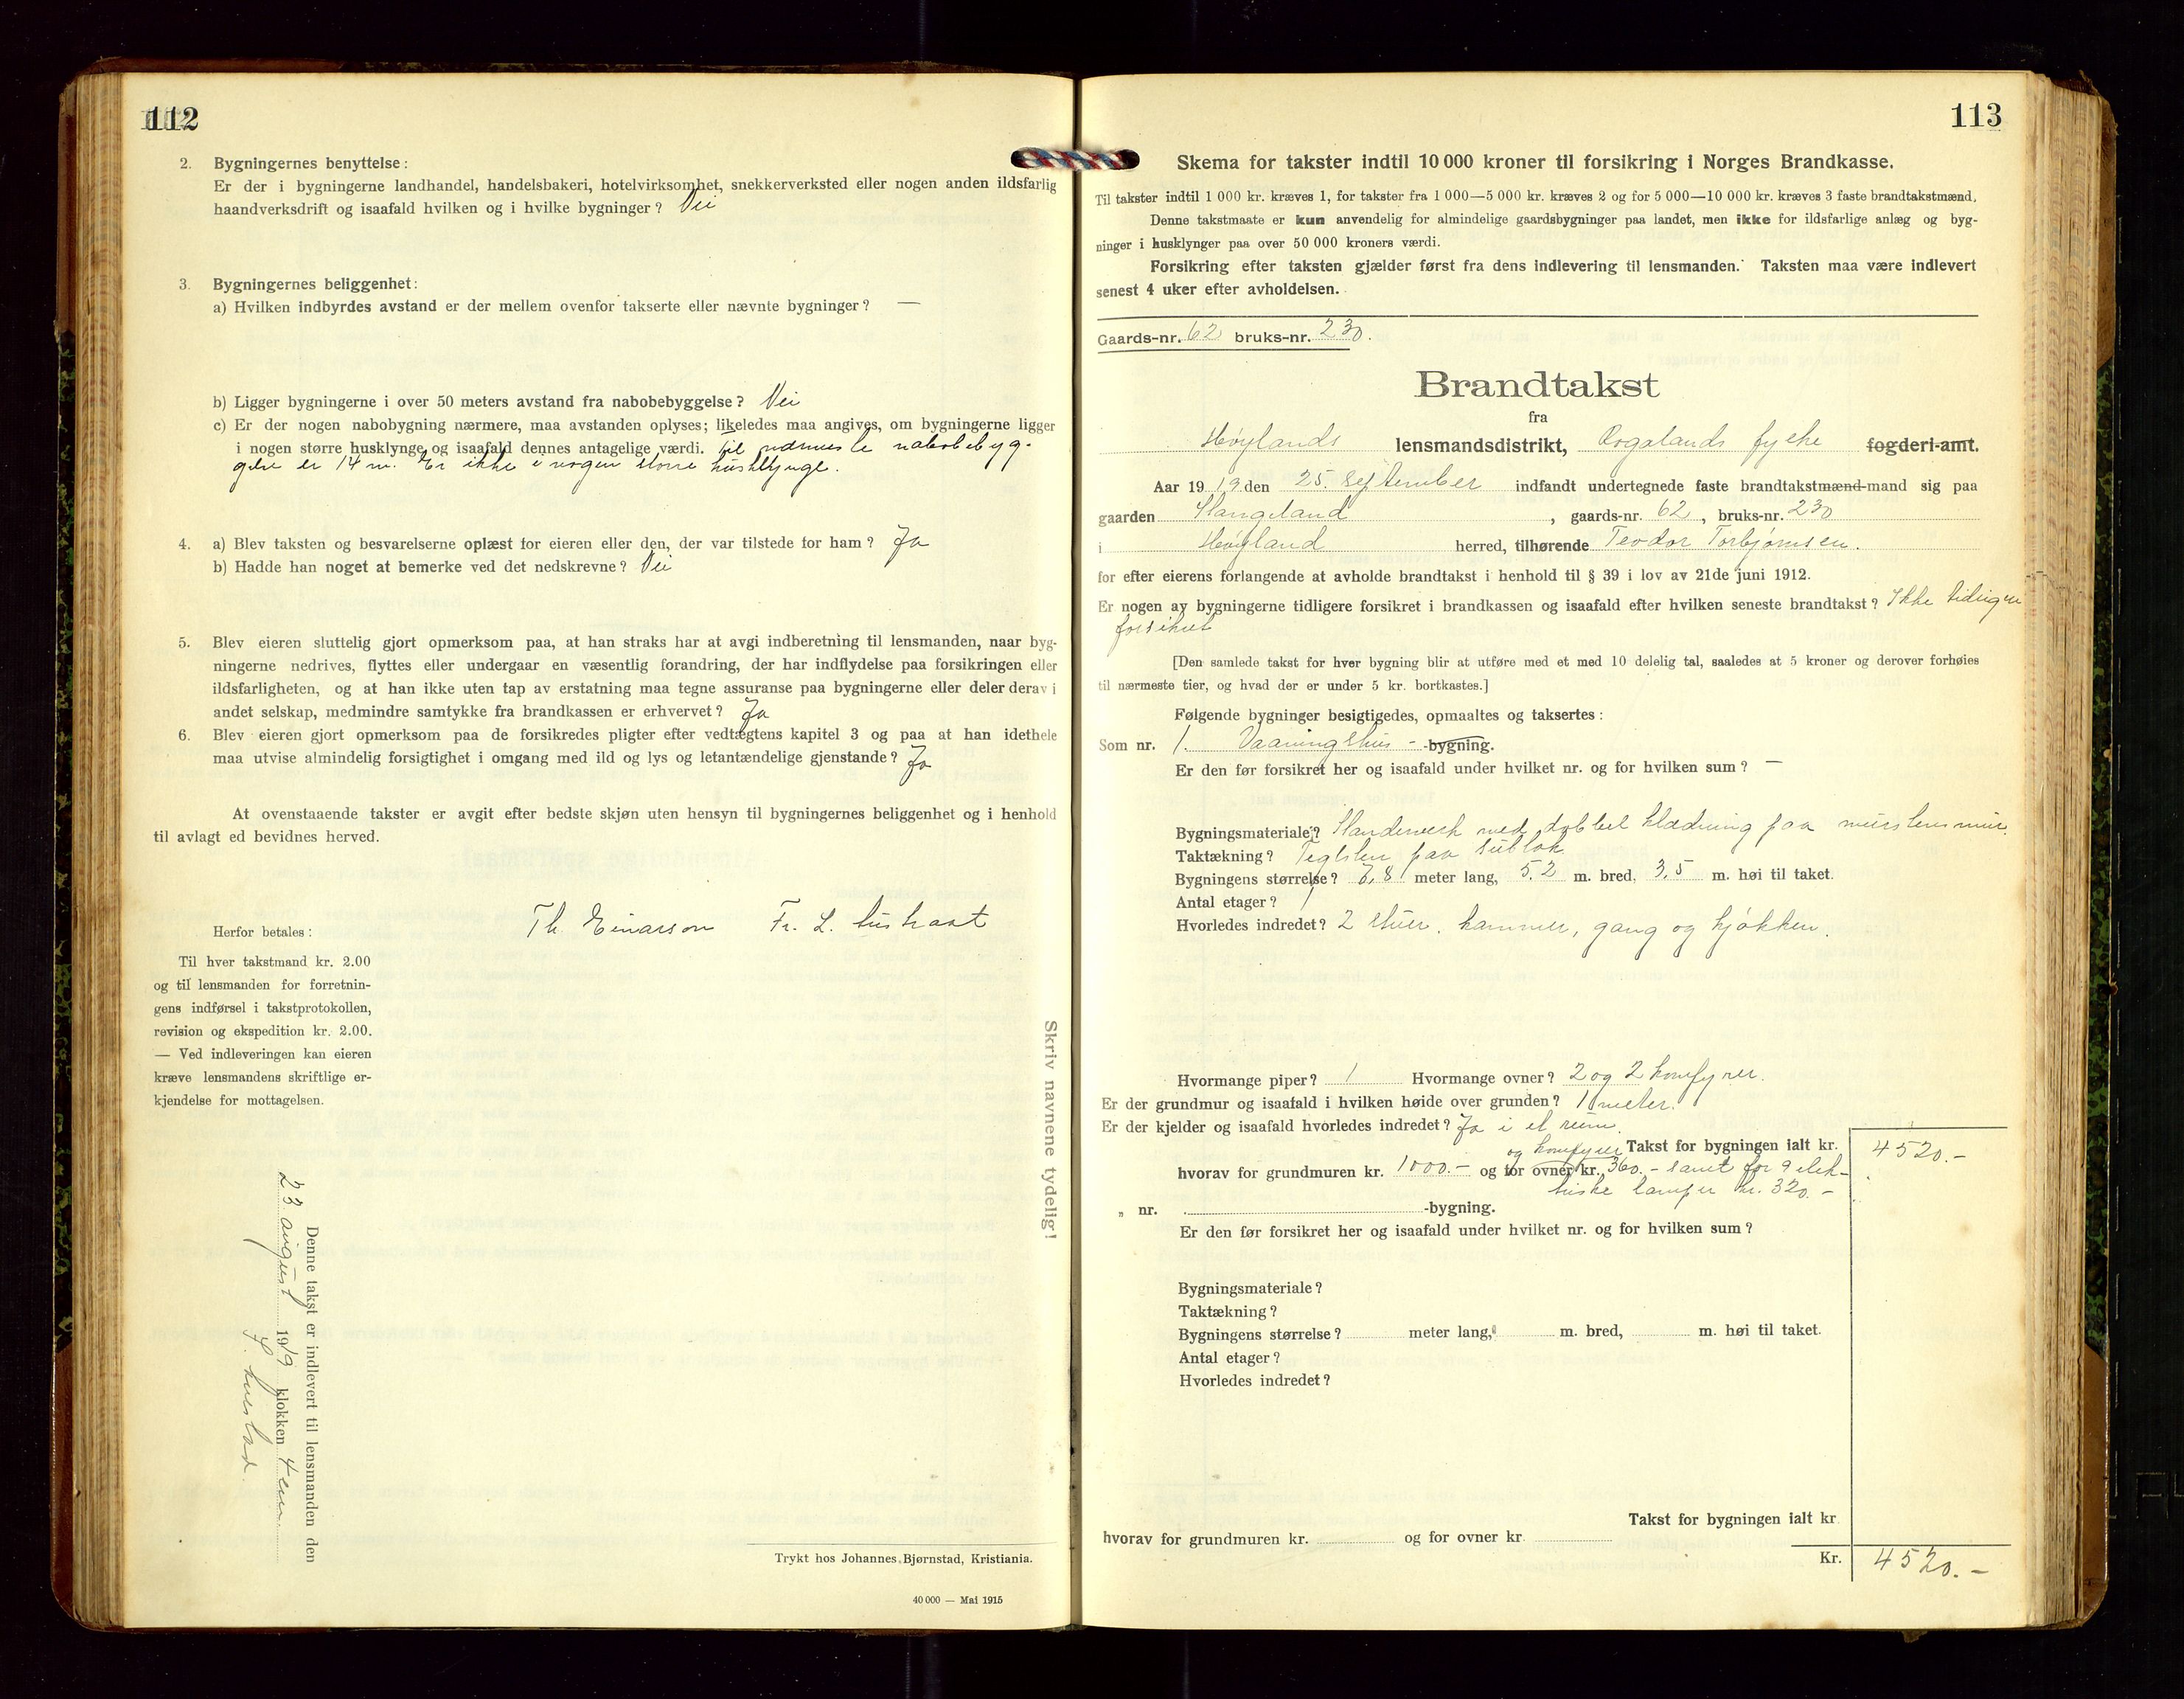 112
2. Bygningernes benyttelse:
Er der i bygningerne landhandel, handelsbakeri, hotelvirksomhet, snekkerverksted eller nogen anden ildsfarlig
haandverksdrift og isaafald hvilken og i hvilke bygninger? Nei
3. Bygningernes beliggenhet:
a) Hvilken indbyrdes avstand er der mellem ovenfor takserte eller nævnte bygninger? —
b) Ligger bygningerne i over 50 meters avstand fra nabobebyggelse? Nei
c) Er der nogen nabobygning nærmere, maa avstanden oplyses; likeledes maa angives, om bygningerne ligger
i nogen større husklynge og isaafald dennes antagelige værdi. Til nærmeste nabobebyg-
gelse er 14 m. Er ikke i nogen större husklynge.
4. a) Blev taksten og besvarelserne oplæst for eieren eller den, der var tilstede for ham? Ja
b) Hadde han noget at bemerke ved det nedskrevne? Nei
5. Blev eieren sluttelig gjort opmerksom paa, at han straks har at avgi indberetning til lensmanden, naar byg-
ningerne nedrives, flyttes eller undergaar en væsentlig forandring, der har indflydelse paa forsikringen eller
ildsfarligheten, og at han ikke uten tap av erstatning maa tegne assuranse paa bygningerne eller deler derav i
andet selskap, medmindre samtykke fra brandkassen er erhvervet? Ja
6. Blev eieren gjort opmerksom paa de forsikredes pligter efter vedtægtens kapitel 3 og paa at han idethele
maa utvise almindelig forsigtighet i omgang med ild og lys og letantændelige gjenstande? Ja
At ovenstaaende takster er avgit efter bedste skjøn uten hensyn til bygningernes beliggenhet og i henhold
til avlagt ed bevidnes herved.
Th. Einarson Fr. L.
Herfor betales:
Til hver takstmand kr. 2.00
og til lensmanden for forretnin-
gens indførsel i takstprotokollen,
revision og ekspedition kr. 2.00.
— Ved indleveringen kan eieren
kræve lensmandens skriftlige er-
kjendelse for mottagelsen.
Skriv navnene tydelig!
Denne takst er indlevert til lensmanden den
23 august 1919 klokken 4 em
Trykt hos Johannes Bjørnstad, Kristiania.
40 000 — Mai 1915
113
Skema for takster indtil 10 000 kroner til forsikring i Norges Brandkasse.
Til takster indtil 1 000 kr. kræves 1, for takster fra 1 000—5 000 kr. kræves 2 og for 5 000—10 000 kr. kræves 3 faste brandtakstmænd.
Denne takstmaate er kun anvendelig for almindelige gaardsbygninger paa landet, men ikke for ildsfarlige anlæg og byg-
ninger i husklynger paa over 50 000 kroners værdi.
Forsikring efter taksten gjælder først fra dens indlevering til lensmanden. Taksten maa være indlevert
senest 4 uker efter avholdelsen.
Gaards-nr. 62 bruks-nr. 230.
Brandtakst
fra
Høylands lensmandsdistrikt, Rogalands fylke fogderi-amt.
Aar 1919 den 25. september indfandt undertegnede faste brandtakstmænd-mand sig paa
gaarden Stangeland, gaards-nr. 62, bruks-nr. 230
i Høyland herred, tilhørende Teodor Torbjørnsen.
for efter eierens forlangende at avholde brandtakst i henhold til § 39 i lov av 21de juni 1912.
Er nogen av bygningerne tidligere forsikret i brandkassen og isaafald efter hvilken seneste brandtakst? Ikke tidligere
forsikret
[Den samlede takst for hver bygning blir at utføre med et med 10 delelig tal, saaledes at 5 kroner og derover forhøies
til nærmeste tier, og hvad der er under 5 kr. bortkastes.]
Følgende bygninger besigtigedes, opmaaltes og taksertes:
Som nr. 1. Vaaningshus - -bygning.
Er den før forsikret her og isaafald under hvilket nr. og for hvilken sum? —
Bygningsmateriale? Standerverk med dobbel klædning paa murstensmur.
Taktækning? Teglsten paa sutak
Bygningens størrelse? 7,8 meter lang, 5,2 m. bred, 3,5 m. høi til taket.
Antal etager? 1
Hvorledes indredet? 2 stuer, kammer, gang og kjøkken.
Hvormange piper? 1 Hvormange ovner? 2 og 2 komfyrer.
Er der grundmur og isaafald i hvilken høide over grunden? 1 meter.
Er der kjelder og isaafald hvorledes indredet? Ja i et rum.
og komfyrer Takst for bygningen ialt kr. 4520.-
hvorav for grundmuren kr. 1000.- og for ovner kr. 360.- samt for 9 elek-
triske lamper kr. 320.-
„ nr. -bygning.
Er den før forsikret her og isaafald under hvilket nr. og for hvilken sum?
Bygningsmateriale?
Taktækning?
Bygningens størrelse? meter lang, m. bred, m. høi til taket.
Antal etager?
Hvorledes indredet?
Takst for bygningen ialt kr
hvorav for grundmuren kr. og for ovner kr.
Kr. 4520.-